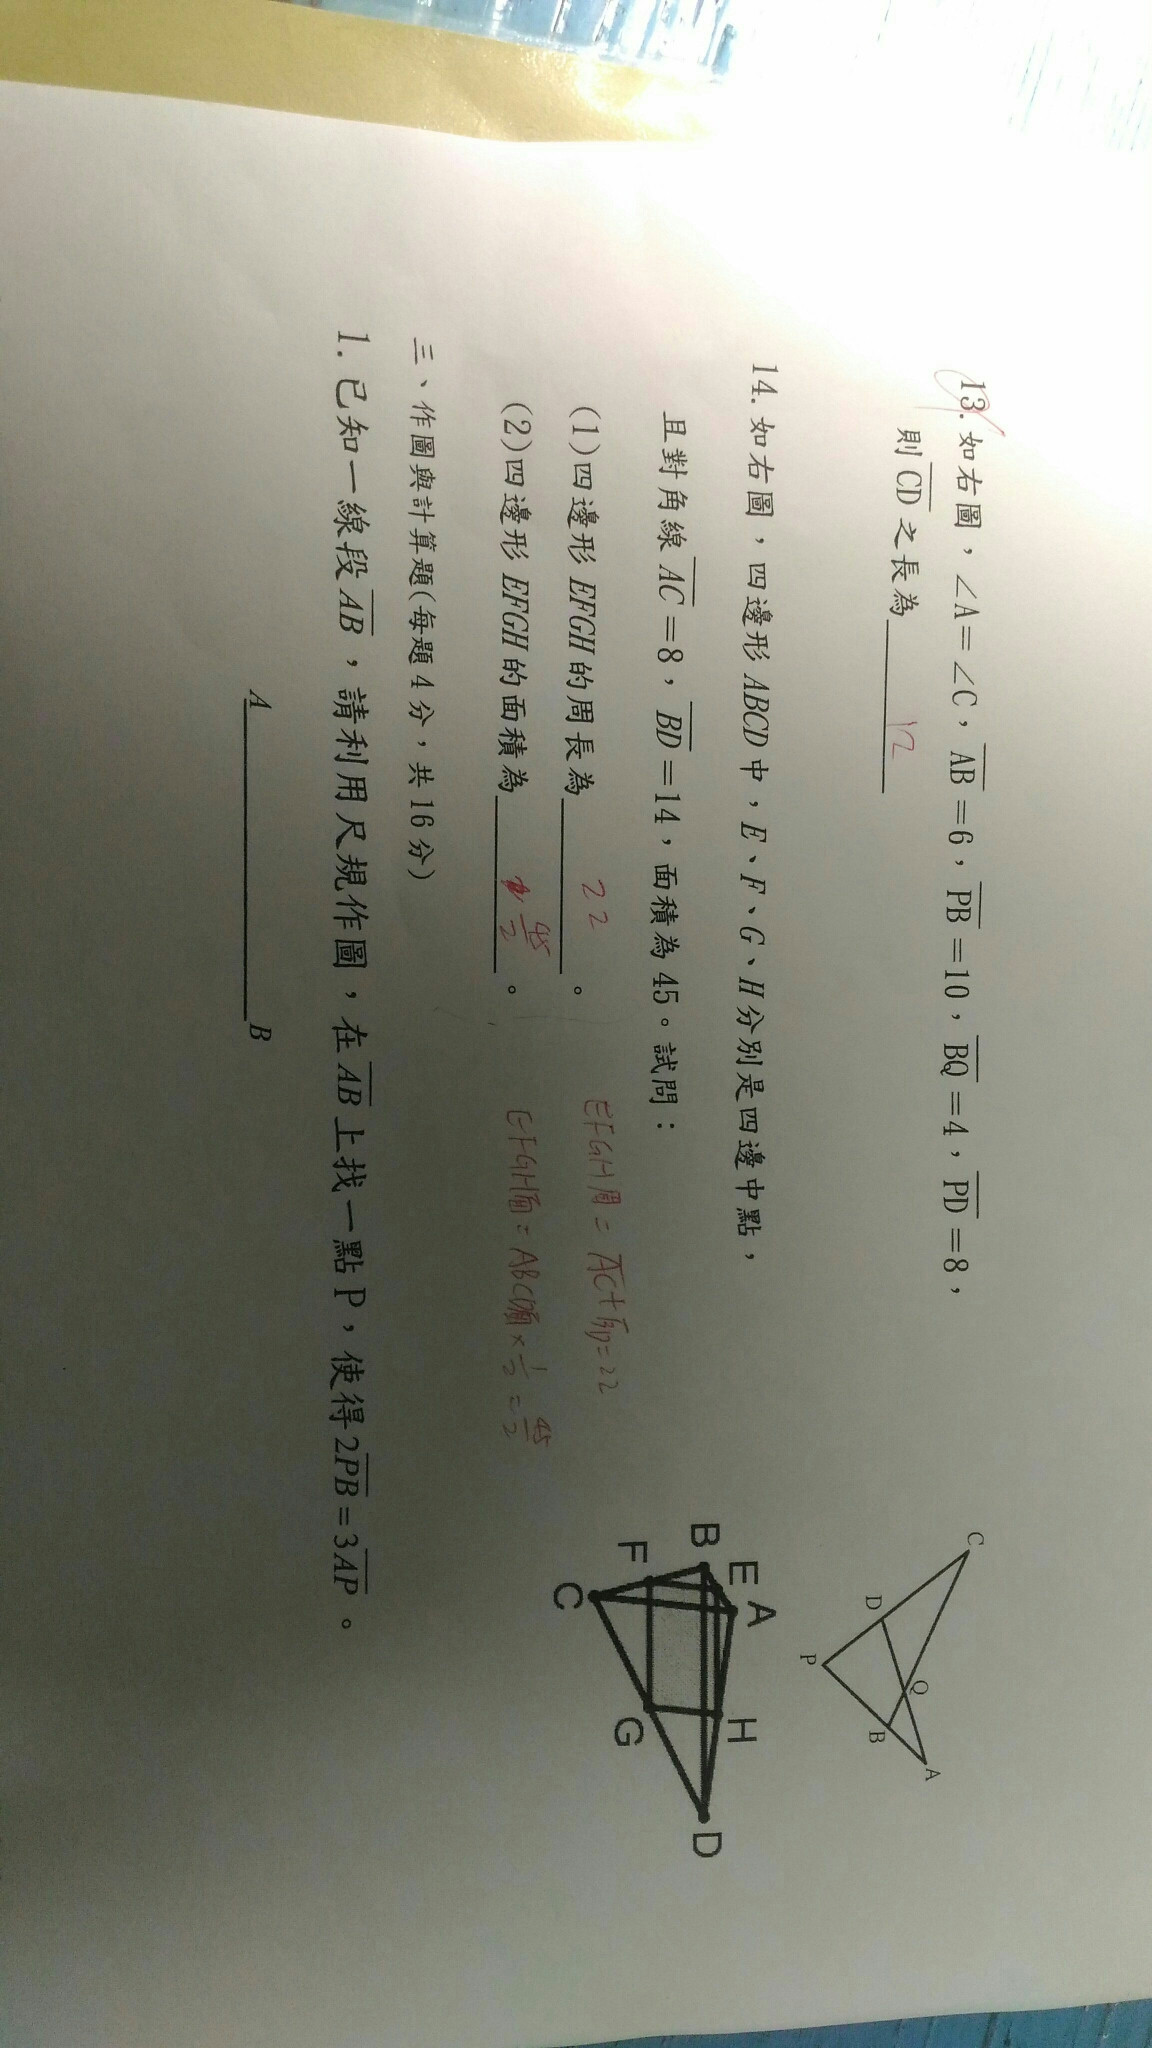 13. 如右圖，∠A=∠C，AB=6，PB=10，BQ=4，PD=8，
則CD之長為 12
C
D
Q
P
B
A
14. 如右圖，四邊形ABCD中，E、F、G、H分別是四邊中點，
且對角線AC=8，BD=14，面積為45。試問：
(1)四邊形EFGH的周長為 22 。 EFGH周=AC+BD=22
(2)四邊形EFGH的面積為 45/2 。 EFGH面=ABCD面×1/2=45/2
A
E
B
H
D
F
G
C
三、作圖與計算題(每題4分，共16分)
1. 已知一線段AB，請利用尺規作圖，在AB上找一點P，使得2PB=3AP。
A B